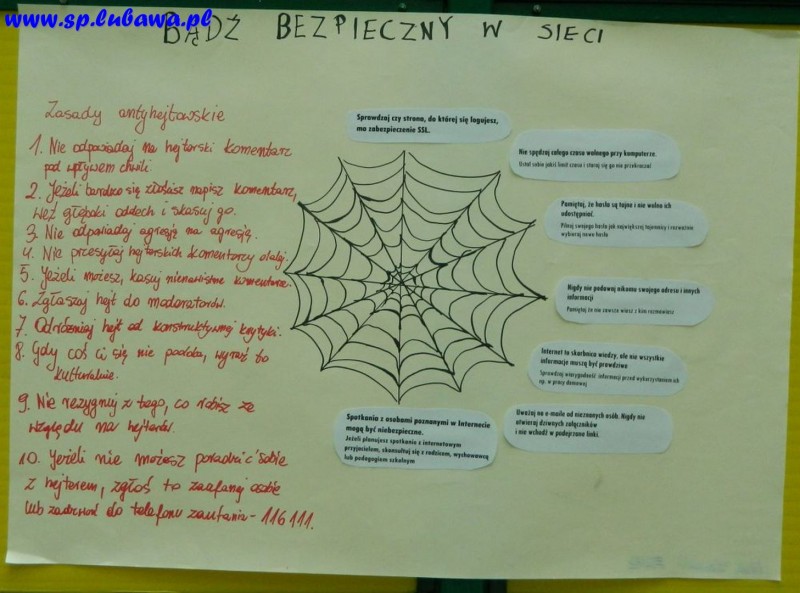 www.sp.lubawa.pl
BĄDŹ BEZPIECZNY W SIECI
Zasady antyhejtowskie
1. Nie odpowiadaj na hejterski komentarz
pod wpływem chwili.
2. Jeżeli bardzo się złościsz napisz komentarz,
weź głęboki oddech i skasuj go.
3. Nie odpowiadaj agresją na agresję.
4. Nie przesyłaj hejterskich komentarzy dalej.
5. Jeżeli możesz, kasuj nienawistne komentarze.
6. Zgłaszaj hejt do moderatorów.
7. Odróżniaj hejt od konstruktywnej krytyki.
8. Gdy coś ci się nie podoba, wyraź to
kulturalnie.
9. Nie rezygnuj z tego, co robisz ze
względu na hejterów.
10. Jeżeli nie możesz poradzić sobie
z hejterem, zgłoś to zaufanej osobie
lub zadzwoń do telefonu zaufania - 116 111.
Sprawdzaj czy strona, do której się logujesz,
ma zabezpieczenie SSL.
Nie spędzaj całego czasu wolnego przy komputerze.
Ustal sobie jakiś limit czasu i staraj się go nie przekraczać.
Pamiętaj, że hasła są tajne i nie wolno ich
udostępniać.
Pilnuj swojego hasła jak największej tajemnicy i rozważnie
wybieraj nowe hasła
Nigdy nie podawaj nikomu swojego adresu i innych
informacji
Pamiętaj że nie zawsze wiesz z kim rozmawiasz
Internet to skarbnica wiedzy, ale nie wszystkie
informacje muszą być prawdziwe
Sprawdzaj wiarygodność informacji przed wykorzystaniem ich
np. w pracy domowej
Uważaj na e-maile od nieznanych osób. Nigdy nie
otwieraj dziwnych załączników
i nie wchodź w podejrzane linki.
Spotkania z osobami poznanymi w Internecie
mogą być niebezpieczne.
Jeżeli planujesz spotkanie z internetowym
przyjacielem, skonsultuj się z rodzicem, wychowawcą
lub pedagogiem szkolnym